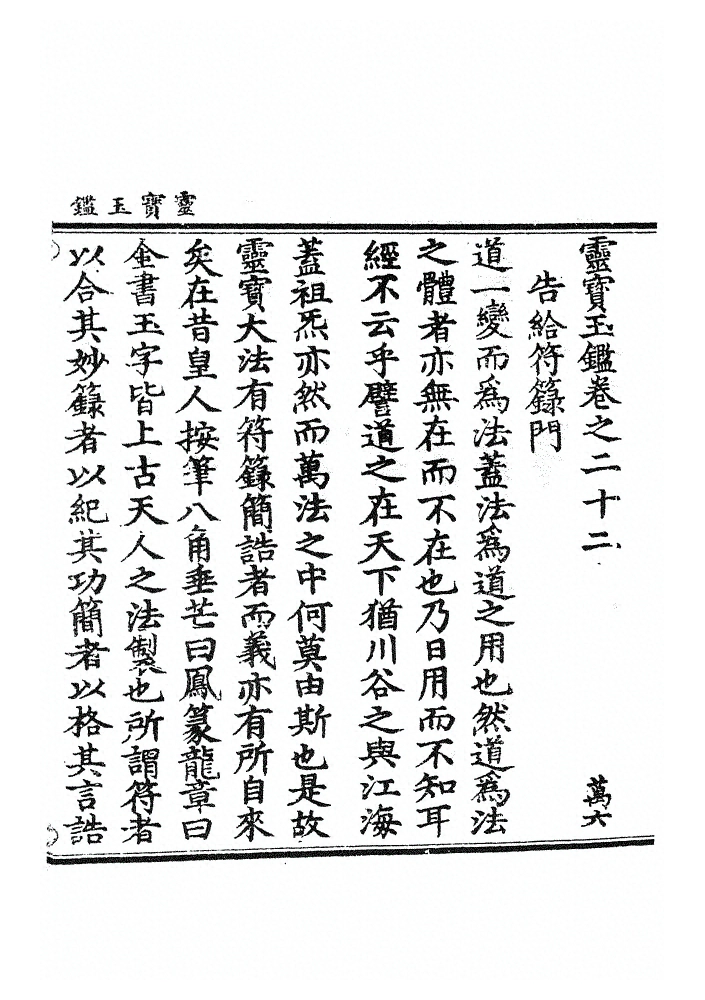 靈寶玉鑑
靈寶玉鑑卷之二十二 萬六
告給符籙門
道一變而爲法蓋法爲道之用也然道爲法
之體者亦無在而不在也乃日用而不知耳
經不云乎譬道之在天下猶川谷之與江海
蓋祖炁亦然而萬法之中何莫由斯也是故
靈寶大法有符籙簡誥者而義亦有所自來
矣在昔皇人按筆八角垂芒曰鳳篆龍章曰
金書玉字皆上古天人之法製也所謂符者
以合其妙籙者以紀其功簡者以格其言誥